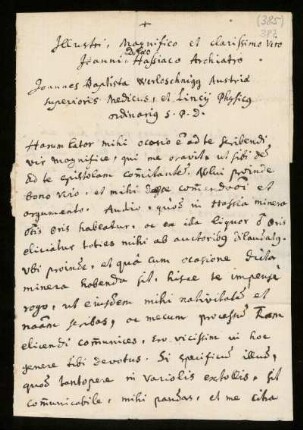 +
(385)
383
Illustri, Magnifico et clarissimo Viro
Joanni Hassiaco Archiatro
Joannes Baptista Werloschnigg Austriæ
superioris Medicus, et Lincij Physicq
ordinariq S. P. D.
Harum lator mihi occasio e ad te scribendi
vir magnifice, qui me oravit ut sibi
ad te epistolam
bono viro, et mihi commendavi et
argumento. Audio, quod in Hassia minera
habeatur, ac ex ida liquor
eliciatur toties mihi ab auctoribq
ubi proinde, et quâ cum ocasione dicta
minera habenda sit, hisce te impense
rogo, ut ejusdem mihi nativitatem et
naam scribas, ac mecum processum
elicendi communices, ero vicissim in hoc
genere tibi devotus. Si specificum illud,
quod tantopere in variolis extollis, sit
communicabile, mihi pandas, et me citra